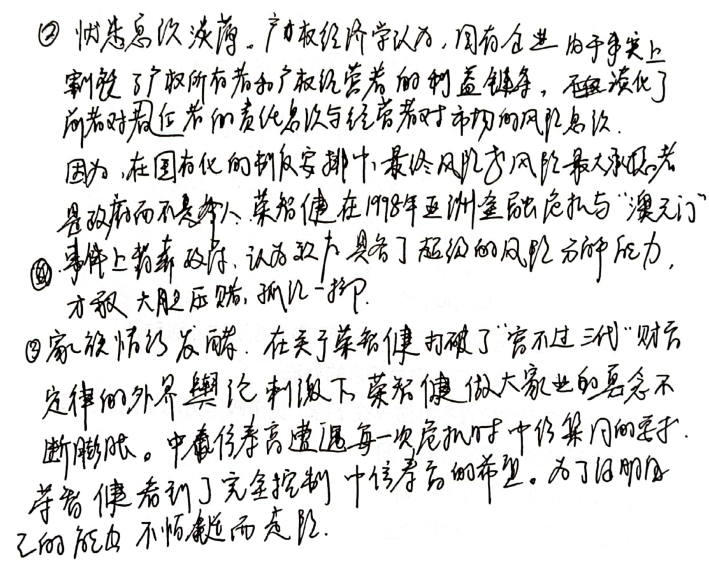 ② 忧患意识淡薄。产权经济学认为,国有企业由于事实上
割裂了产权所有者和产权经营者的利益链条,不仅淡化了
前者对看位者的责任意识与经营者对市场的风险意识.
因为,在国有化的制度安排中,最终风险或风险最大承担者
是政府而不是个人.荣智健在1998年亚洲金融危机与“澳元门”
事件上都靠政府、认为政府具备了超级的风险分解能力,
才敢大胆压赌,孤注一掷.
③ 家族情结发酵.在关于荣智健打破了“富不过三代”财富
定律的外界舆论刺激下 荣智健做大家业的意念不
断膨胀。中信泰富遭遇每一次危机时 中信集团的出手.
荣智健看到了完全控制中信泰富的希望。为了证明自
己的能力 不惜铤而走险.